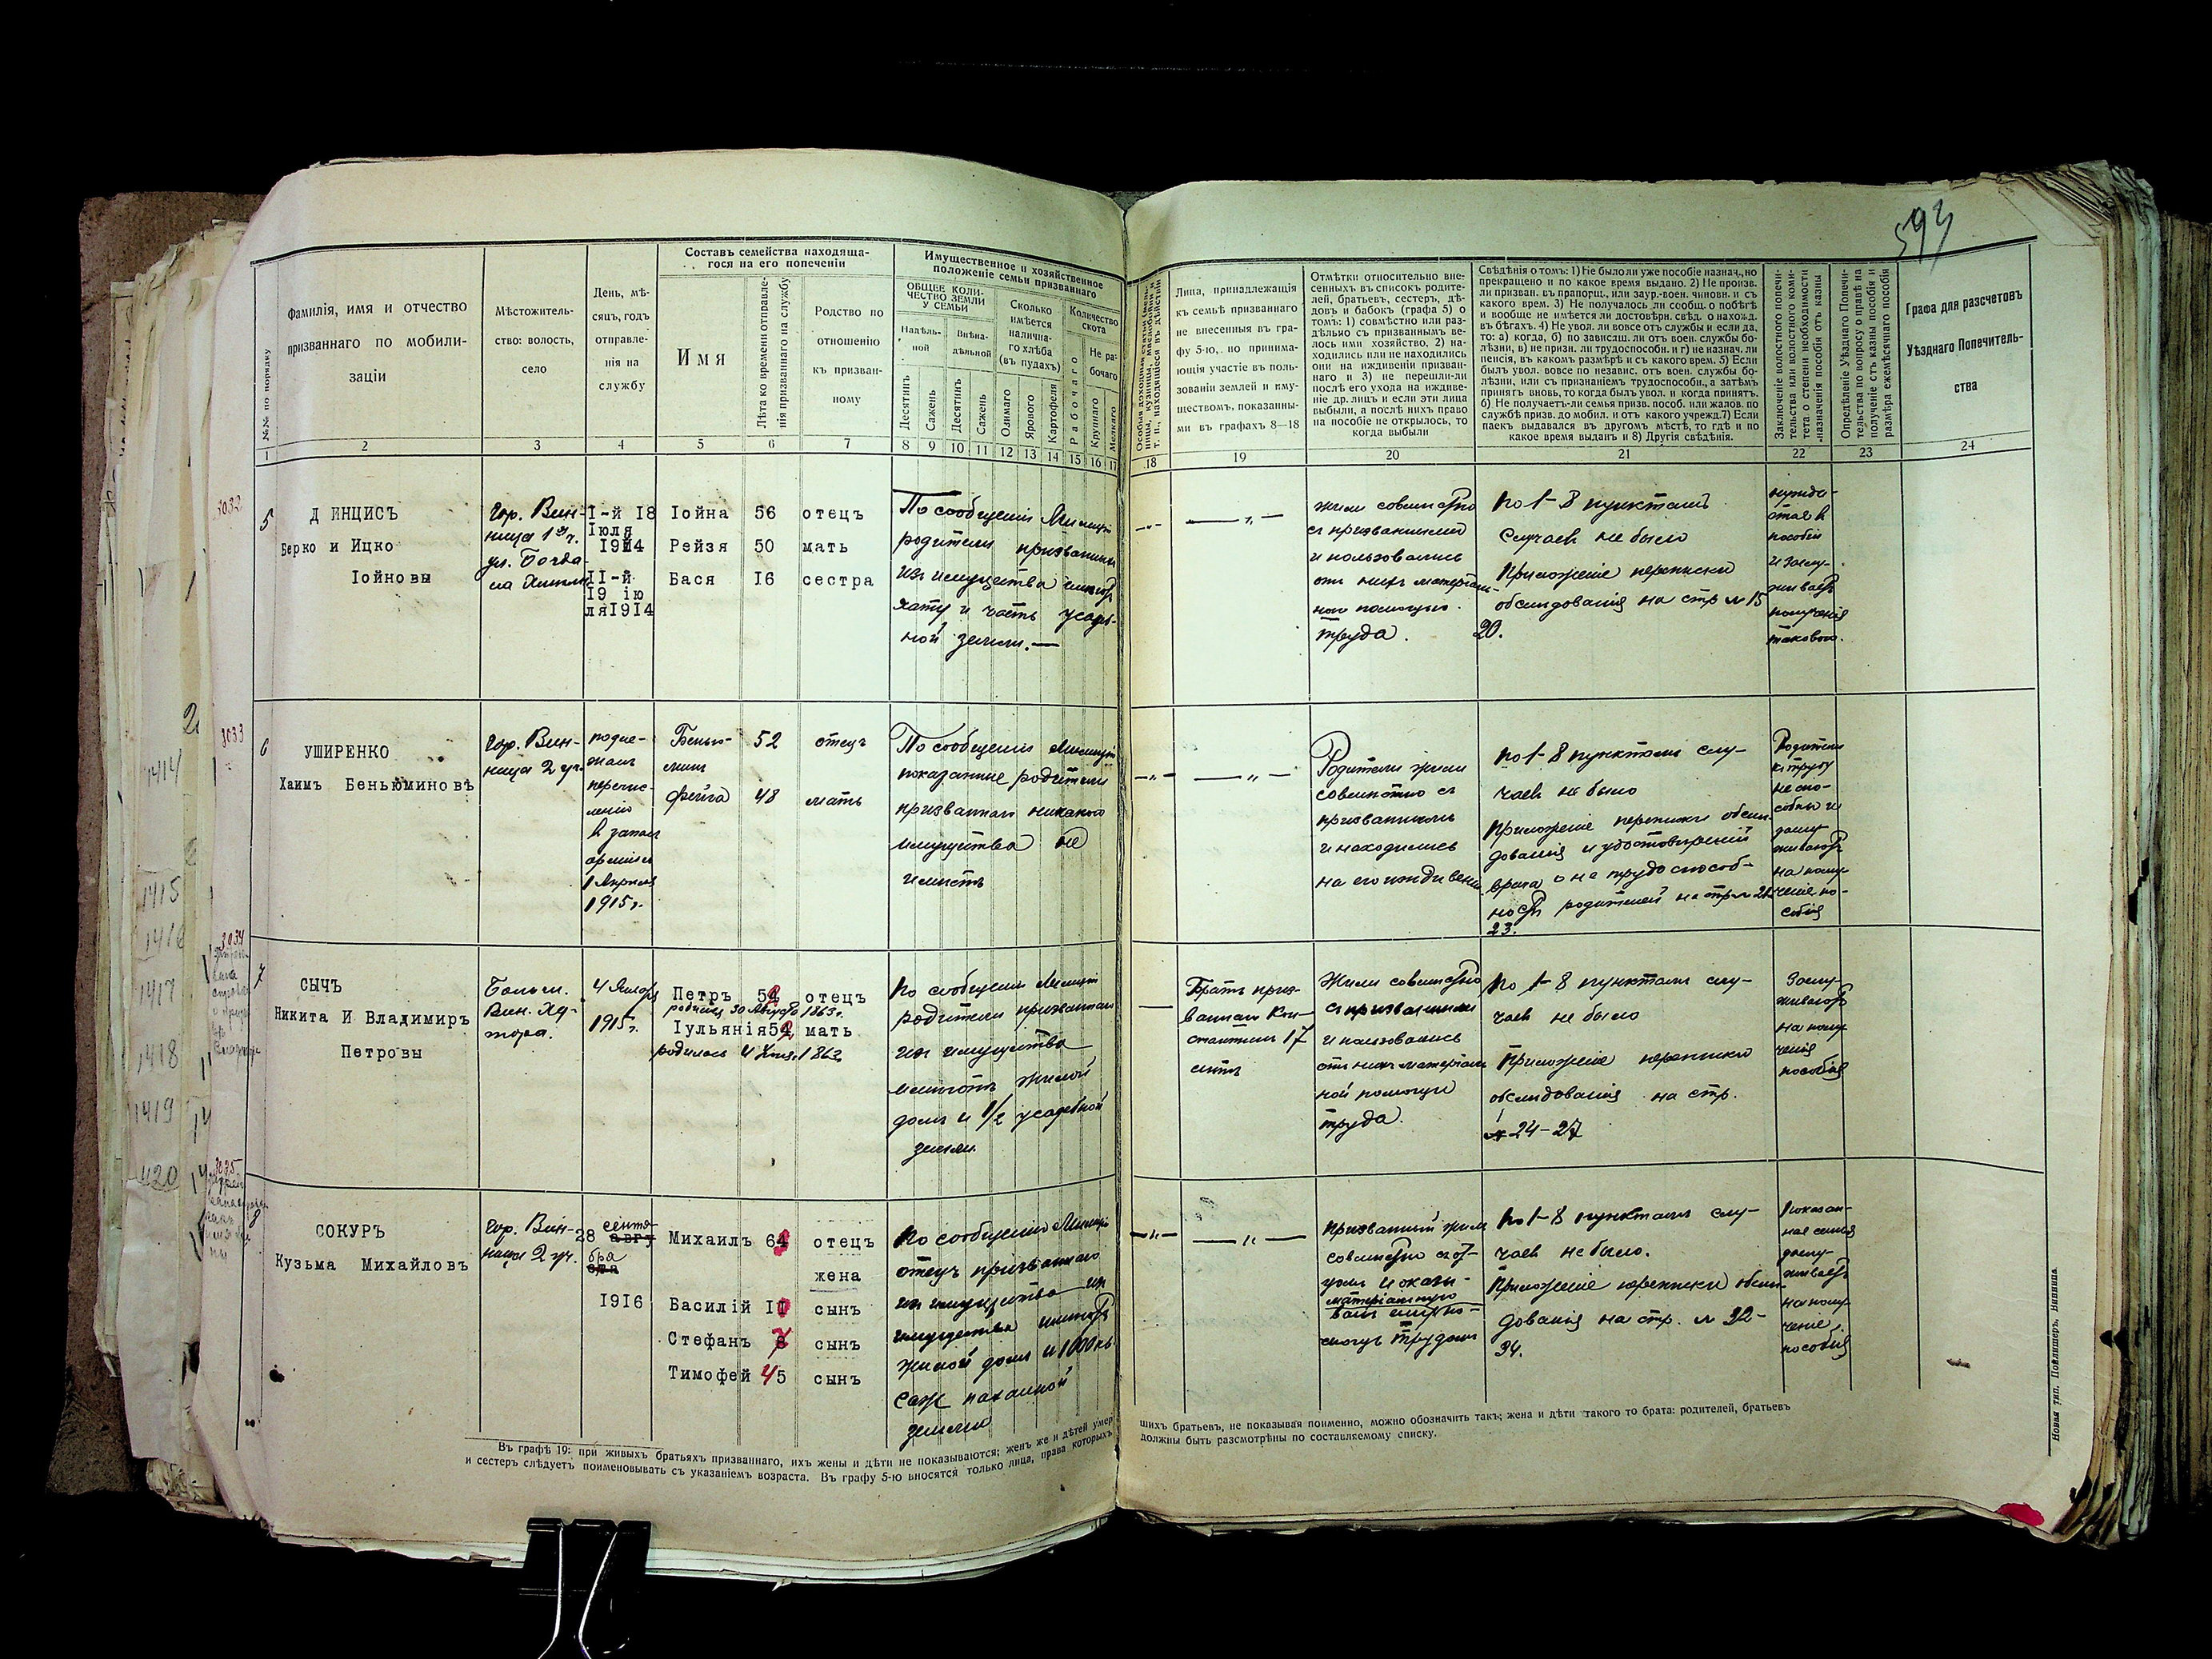 593
Составъ семейства находяща-
гося на его попеченіи
Имущественное и хозяйственное
положеніе семьи призваннаго
№№ по порядку
Фамилія, имя и отчество
призваннаго по мобили-
заціи
Мѣстожитель-
ство: волость,
село
День, мѣ-
сяцъ, годъ
отправле-
нія на
службу
Имя
Лѣта ко времени отправле-
нія призваннаго на службу
Родство по
отношенію
къ призван-
ному
ОБЩЕЕ КОЛИ-
ЧЕСТВО ЗЕМЛИ
У СЕМЬИ
Надѣль-
ной
Внѣна-
дѣльной
Десятинъ
Сажень
Десятинъ
Сажень
Сколько
имѣется
налична-
го хлѣба
(въ пудахъ)
Озимаго
Ярового
Картофеля
Количество
скота
Рабочаго
Не ра-
бочаго
Крупнаго
Мелкаго
Лица, принадлежащія
къ семьѣ призваннаго
не внесенныя въ гра-
фу 5-ю, но принима-
ющія участіе въ поль-
зованіи землей и иму-
ществомъ, показанны-
ми въ графахъ 8—18
Отмѣтки относительно вне-
сенныхъ въ списокъ родите-
лей, братьевъ, сестеръ, дѣ-
довъ и бабокъ (графа 5) о
томъ: 1) совмѣстно или раз-
дѣльно съ призваннымъ ве-
лось ими хозяйство, 2) на-
ходились или не находились
они на иждивеніи призван-
наго и 3) не перешли-ли
послѣ его ухода на иждиве-
ніе др. лицъ и если эти лица
выбыли, а послѣ нихъ право
на пособіе не открылось, то
когда выбыли
Свѣдѣнія о томъ: 1) Не было ли уже пособіе назнач., но
прекращено и по какое время выдано. 2) Не произв.
ли призван. въ прапорщ., или заур.-воен. чиновн. и съ
какого врем. 3) Не получалось ли сообщ. о побѣгѣ
и вообще не имѣется ли достовѣрн. свѣд. о нахожд.
въ бѣгахъ. 4) Не увол. ли вовсе отъ службы и если да,
то: а) когда, б) по зависящ. ли отъ воен. службы бо-
лѣзни, в) не призн. ли трудоспособн. и г) не назнач. ли
пенсія, въ какомъ размѣрѣ и съ какого врем. 5) Если
былъ увол. вовсе по независ. отъ воен. службы бо-
лѣзни, или съ признаніемъ трудоспособн., а затѣмъ
принятъ вновь, то когда былъ увол. и когда принятъ.
6) Не получаетъ-ли семья призв. пособ. или жалов. по
службѣ призв. до мобил. и отъ какого учрежд. 7) Если
паекъ выдавался въ другомъ мѣстѣ, то гдѣ и по
какое время выданъ и 8) Другія свѣдѣнія.
Заключеніе волостного попечи-
тельства или волостного коми-
тета о степени необходимости
назначенія пособія отъ казны
Опредѣленіе Уѣзднаго Попечи-
тельства по вопросу о правѣ на
полученіе отъ казны пособія и
размѣра ежемѣсячнаго пособія
Графа для разсчетовъ
Уѣзднаго Попечитель-
ства
1 2 3 4 5 6 7 8 9 10 11 12 13 14 15 16 17 18 19 20 21 22 23 24
3032
5
ДИНЦИСЪ
Берко и Ицко
Іойновы
Гор. Вин-
ница 1 уч.
ул. Богда-
на
I-й I8
Іюля
I9I4
II-й
I9 ію
ляI9I4
Іойна 56 отецъ
Рейзя 50 мать
Бася I6 сестра
По сообщенію Милиціи
родители призванныхъ
изъ имущества имѣютъ
хату и часть усадеб-
ной земли.—
жили совмѣстно
съ призванными
и пользовались
отъ нихъ матеріаль-
ной помощью
труда.
по 1-8 пунктамъ
случаевъ не было
Приложеніе переписки
обслѣдованія на стр № 15
20.
нужда-
ется въ
пособіи
и заслу-
живаетъ
полученія
такового.
3033
6
УШИРЕНКО
Хаимъ Беньюминовъ
Гор. Вин-
ница 2 уч.
подле-
жалъ
перечис-
ленію
въ запасъ
арміи
1 Апрѣля
1915 г.
Бенью-
минъ 52 отецъ
Фейга 48 мать
По сообщенію Милиціи
показанные родители
призваннаго никакого
имущества не
имѣютъ
Родители жили
совмѣстно съ
призваннымъ
и находились
на его иждивеніи
по 1-8 пунктамъ слу-
чаевъ не было
Приложеніе переписки обслѣ-
дованія и удостовѣреній
врача о не трудоспособ-
ности родителей на стр №
23.
Родители
къ труду
не спо-
собны и
заслу-
живаютъ
на полу-
ченіе по-
собія
3034
7
СЫЧЪ
Никита И Владимиръ
Петровы
Больш.
Вин. Ху-
тора.
4 Января
1915 г.
Петръ 54 отецъ
родился 30 Августа 1863 г.
Іульянія 54 мать
родилась 4 1862
По сообщенію Милиціи
родители призванныхъ
изъ имущества
имѣютъ жилой
домъ и 1/2 усадебной
земли
Братъ приз-
ванныхъ Кон-
стантинъ 17
лѣтъ
Жили совмѣстно
съ призванными
и пользовались
отъ нихъ матеріаль-
ной помощью
труда.
По 1-8 пунктамъ слу-
чаевъ не было
Приложеніе переписки
обслѣдованія на стр.
№ 24-27
Заслу-
живаютъ
на полу-
ченія
пособія
3035
8
СОКУРЪ
Кузьма Михайловъ
Гор. Вин-
ница 2 уч.
28 сентя-
бря
I9I6
Михаилъ 64 отецъ
жена
Василій II сынъ
Стефанъ 7 сынъ
Тимофей 45 сынъ
По сообщенію Милиціи
отецъ призваннаго
изъ имущества
имущества имѣетъ
жилой домъ и 1000 кв.
саж пахатной
земли
Призванный жилъ
совмѣстно съ от-
цомъ и оказы-
матеріальную
валъ ему по-
мощь трудомъ
По 1-8 пунктамъ слу-
чаевъ не было.
Приложеніе переписки обслѣ-
дованія на стр. № 32-
34.
Показан-
ная семья
заслу-
живаетъ
на полу-
ченіе
пособія
1414
1415
1416
1417
1418
1419
420
Въ графѣ 19: при живыхъ братьяхъ призваннаго, ихъ жены и дѣти не показываются; женъ же и дѣтей умер
шихъ братьевъ, не показывая поименно, можно обозначить такъ; жена и дѣти такого то брата: родителей, братьевъ
и сестеръ слѣдуетъ поименовывать съ указаніемъ возраста. Въ графу 5-ю вносятся только лица, права которыхъ
должны быть разсмотрѣны по составляемому списку.
Новая тип. Поллишеръ, Винница.